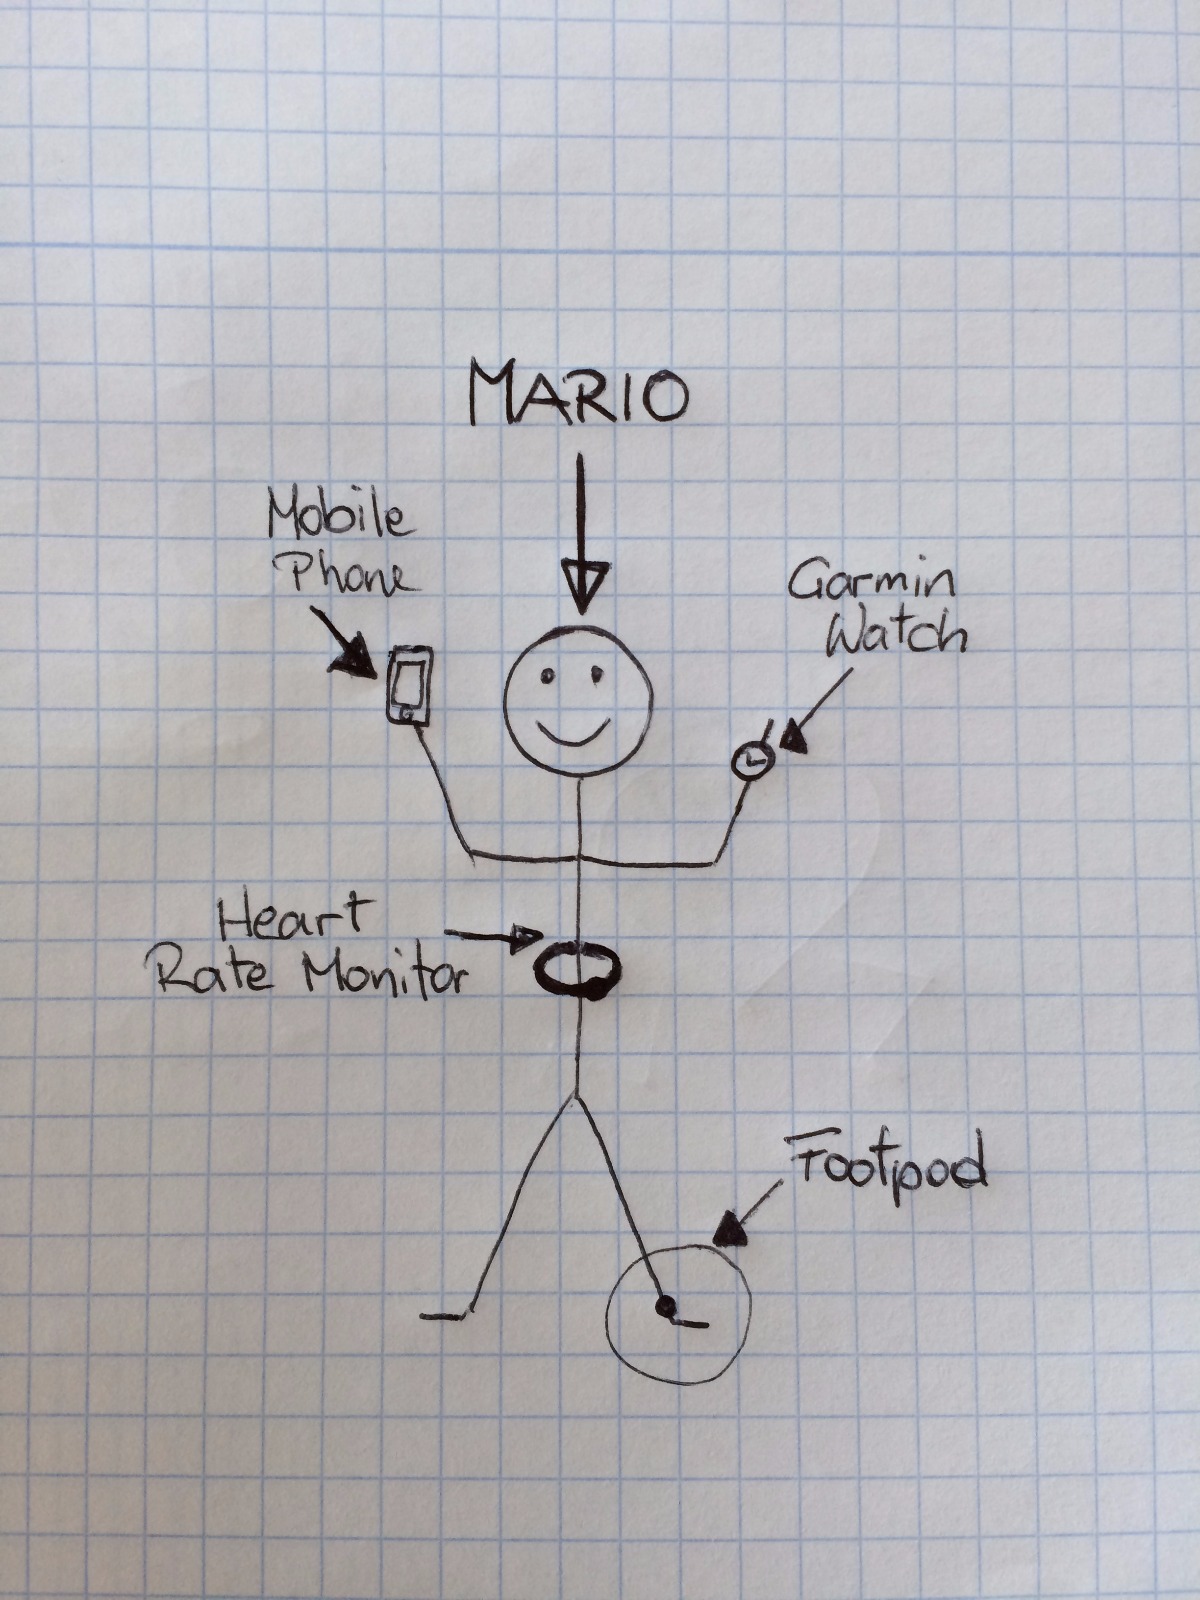 MARIO
Mobile
Phone
Garmin
Watch
Heart
Rate Monitor
Footpod